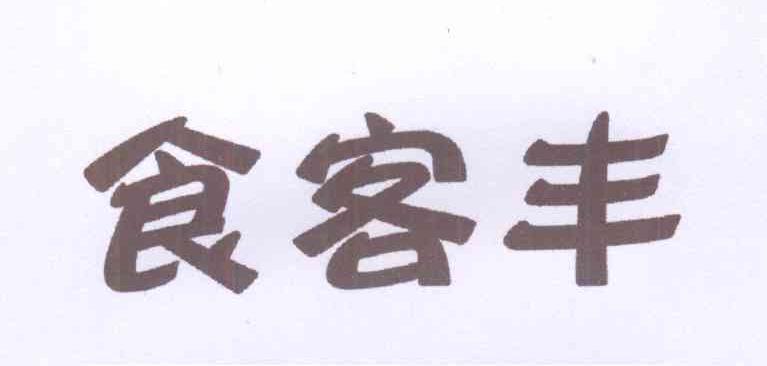 食客丰